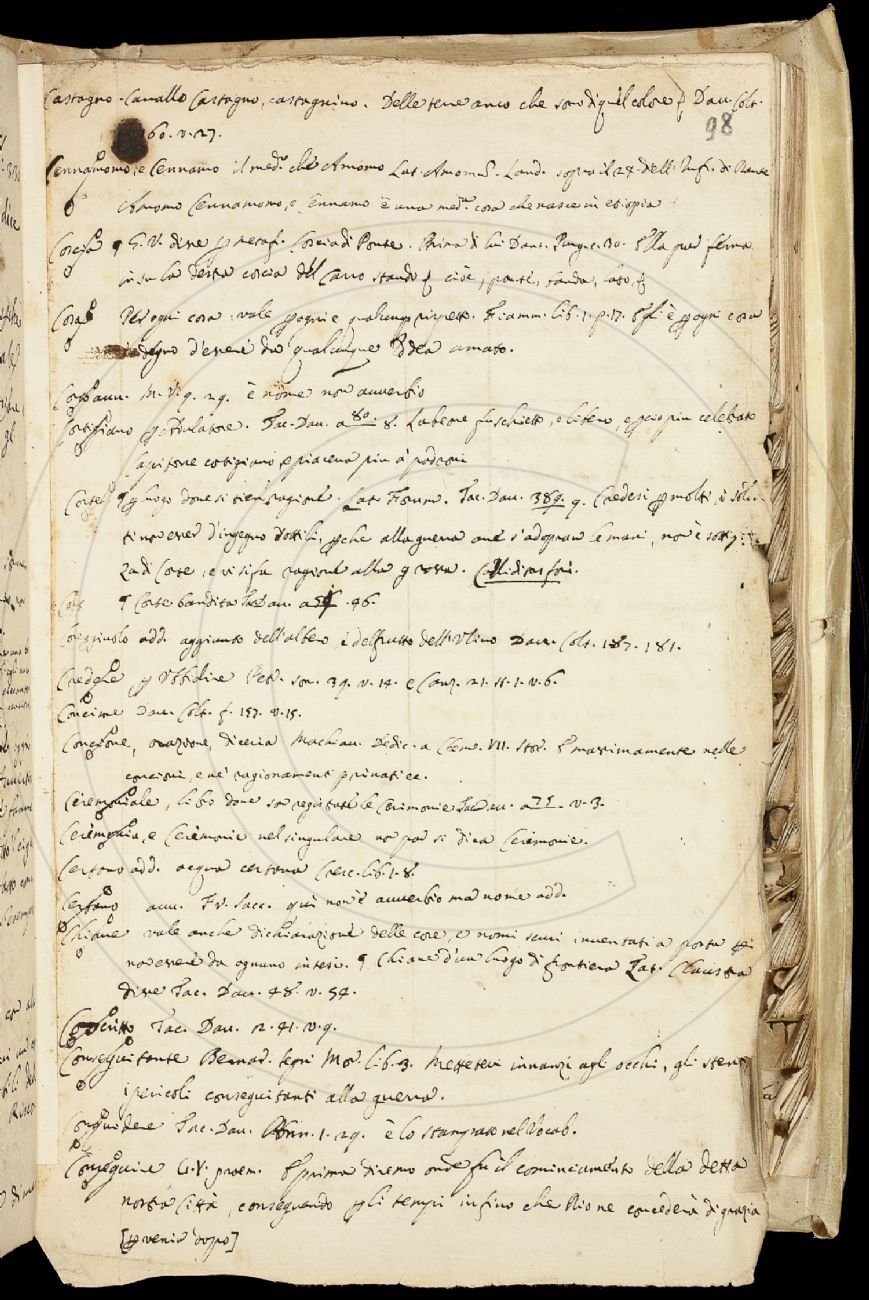 Castagno - Cavallo Castagno, castagnino. Delle terre anco che sono di quel colore Dav. Colt.
98
160. v. 27.
Cennamomo, e Cennamo il med.º che Amomo Lat. Amomũ. Land. sopra il 24. dell' Inf. di Dante
Amomo Cennamomo, e Cennamo è una med.ª cosa che nasce in etiopia
Coscia ¶ G. V. dice p metaf. Coscia di Ponte. Prima di lui Dant. Purg. c. 30. Ella pur ferma
in su la detta coscia del Carro stando cioè, parte, banda, lato,
Cosa Per ogni cosa: vale p ogni e qualunq rispetto. Fiamm. lib. 1. p. 17. Egli è p ogni cosa
degno d'essere da qualunque Idea amato.
avv. M. V. 9. 29. è nome non avverbio
Cortigiano p Adulatore. Tac. Dav. a 80. 8. Labeone fu schietto, e libero, e p ciò più celebrato
Capitone cortigiano, e piaceva più a' padroni
Corte ¶ p luogo dove si tien ragione. Lat. Forum. Tac. Dav. 389. 9. Credesi p molti, i soldati
non esser d'ingegno sottili, pche alla guerra ove s'adopran le mani, non è sottigliez
za di Corte, e vi si fa ragione alla grossa.
¶ Corte bandita Tac. Dav. a 46.
Coreggiuolo add. aggiunto dell'albero, e del frutto dell'Ulivo Dav. Colt. 187. 181.
p Ubbidire Pet. son. 39. v. 14. e Canz. 21. st. 1. v. 6.
Concime Dav. Colt. f. 157. v. 15.
Concione, orazione, diceria Machiav. Dedic. a Clem. VII. Stor. E massimamente nelle
concioni, e ne' ragionamenti privati ec.
Ceremoniale, libro dove son registrate le Cerimonie Tac. Dav. a 75. v. 3.
Ceremonia, e Ceremonie nel singulare non par si dica Ceremonie.
Certano add. acqua certana Cresc. lib. 1. 8.
Certano avv. Fr. Iacc. qui non è avverbio ma nome add.
Chiave vale anche dichiarazione delle cose, e nomi scuri inventati a posta p
non essere da ognuno intesi. ¶ Chiave d'un luogo di frontiera Lat. Claustra
dice Tac. Dav. 48. v. 54.
Coscritto Tac. Dav. 12. 41. v. 9.
Conseguitante Bernar. Segni Mor. lib. 3. Mettetevi innanzi agli occhi, gli stenti
i pericoli conseguitanti alla guerra.
Conquidere Tac. Dav. Ann. 1. 29. è lo stampato nel Vocab.
Conseguire G. V. proem. E prima diremo onde fu il cominciamento della detta
nostra Città, conseguendo p gli tempi infino che Dio ne concederà di grazia
[p venir dopo]